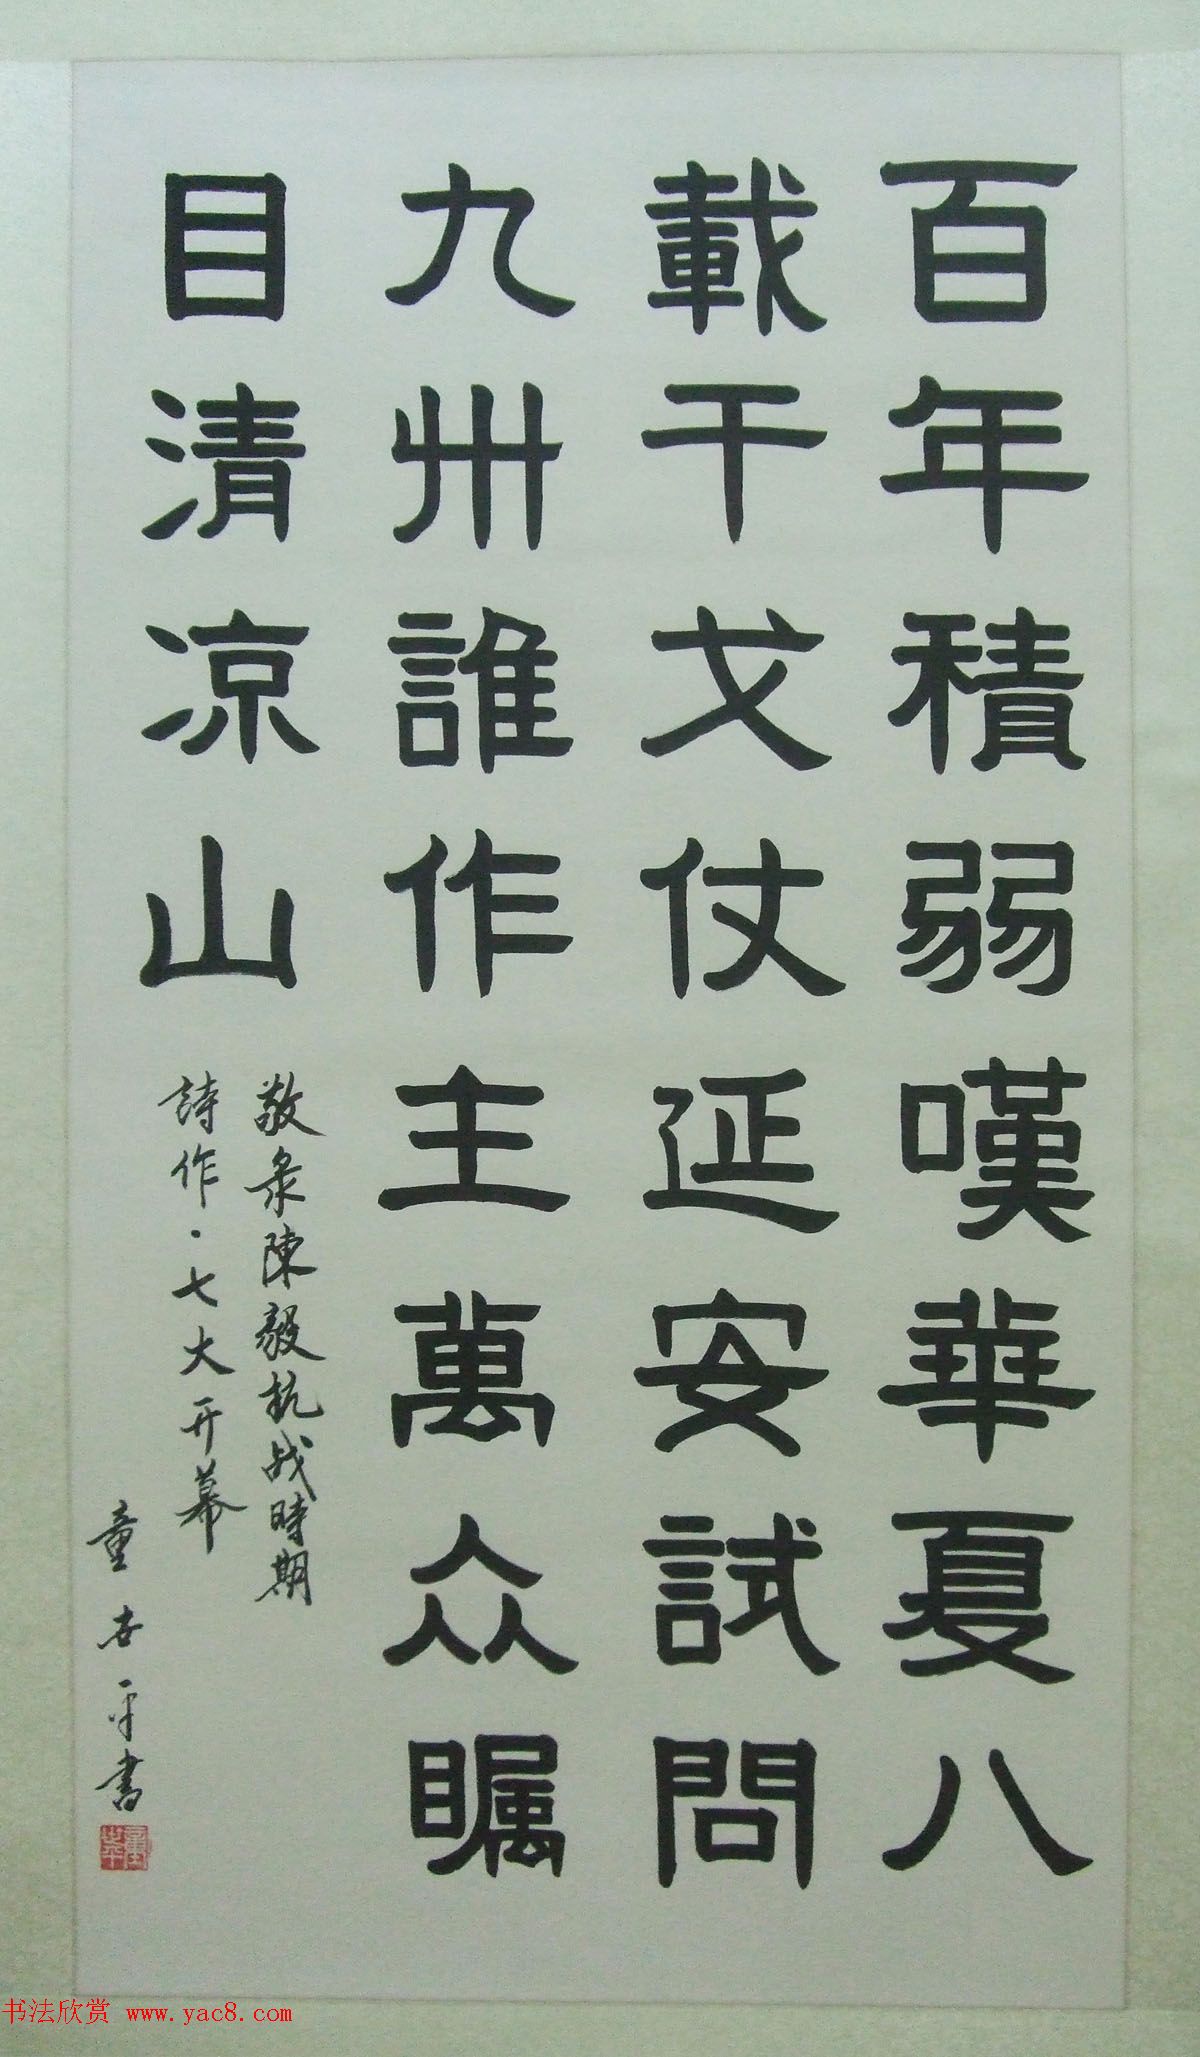 百年積弱嘆華夏八
載干戈仗延安試問
九州誰作主萬众瞩
目清凉山
敬录陳毅抗战時期
詩作·七大开幕
童 平書
书法欣赏 www.yac8.com